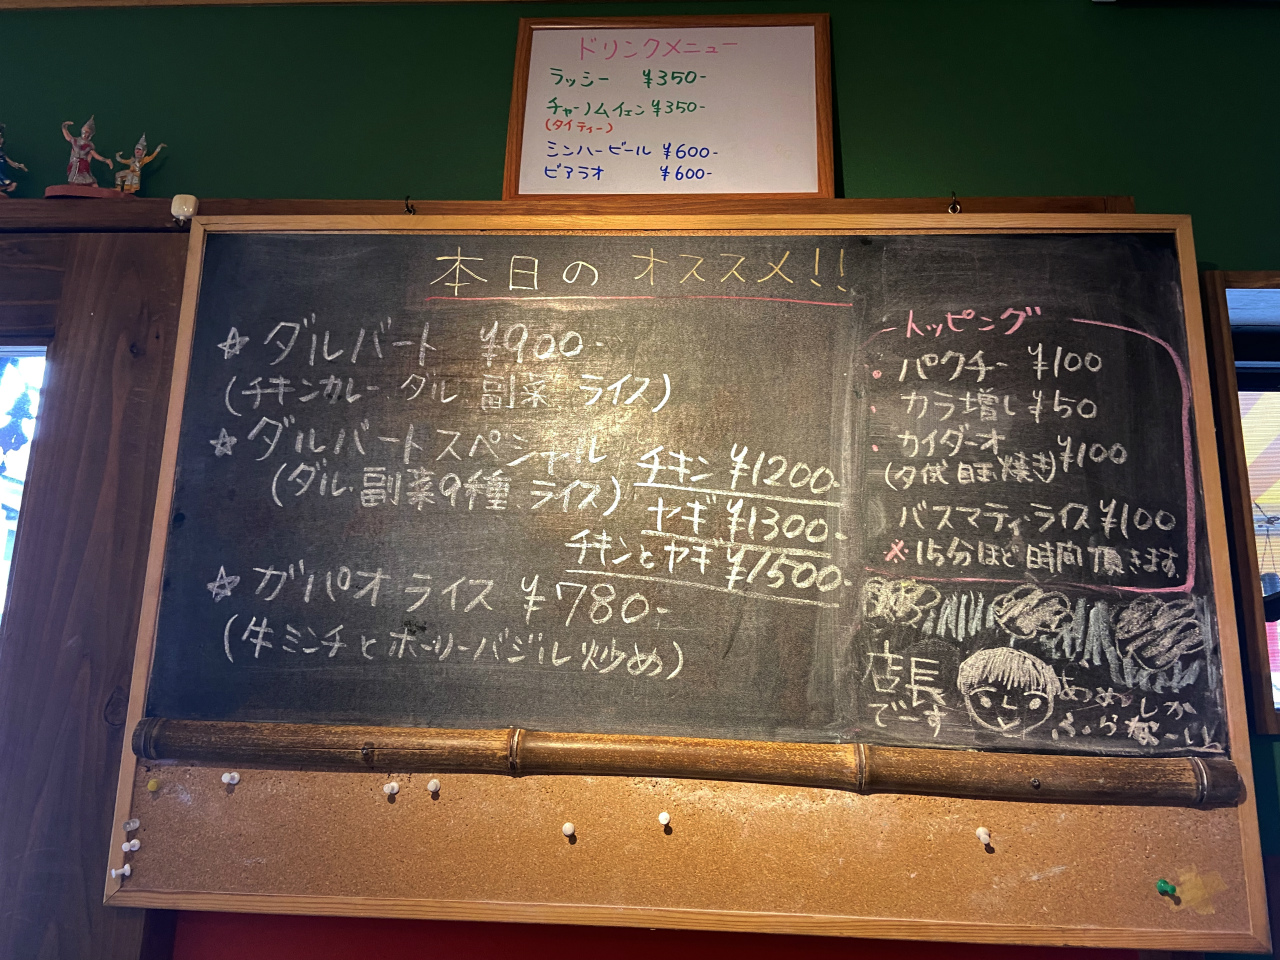 ドリンクメニュー
ラッシー ¥350-
チャーノムイェン ¥350-
(タイティー)
シンハービール ¥600-
ビアラオ ¥600-
本日のオススメ!!
☆ ダルバート ¥900-
(チキンカレー、ダル、副菜、ライス)
☆ ダルバートスペシャル
(ダル、副菜9種、ライス)
チキン ¥1200-
ヤギ ¥1300-
チキンとヤギ ¥1500-
☆ ガパオライス ¥780-
(牛ミンチとホーリーバジル炒め)
トッピング
・パクチー ¥100
・カラ増し ¥50
・カイダーオ ¥100
(タイ風目玉焼き)
バスマティ・ライス ¥100
※15分ほど時間頂きます
店長
でーす
あめしか
ふらなーい